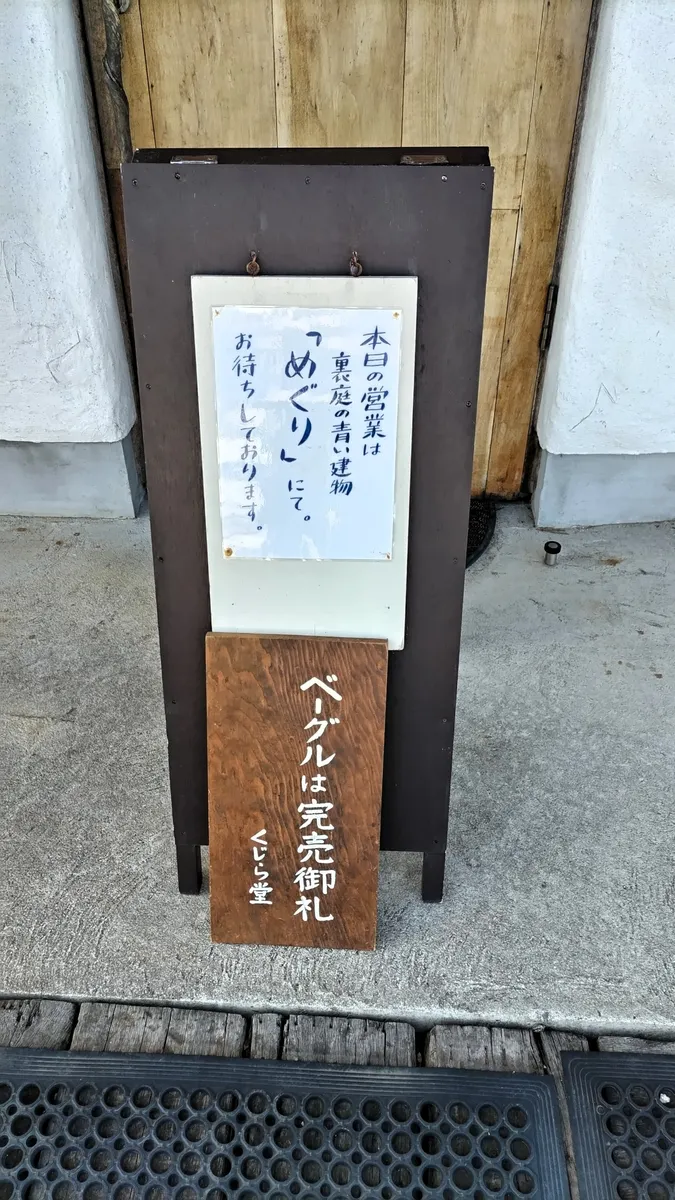 本日の営業は
裏庭の青い建物
「めぐり」にて。
お待ちしております。
ベーグルは完売御礼
くじら堂